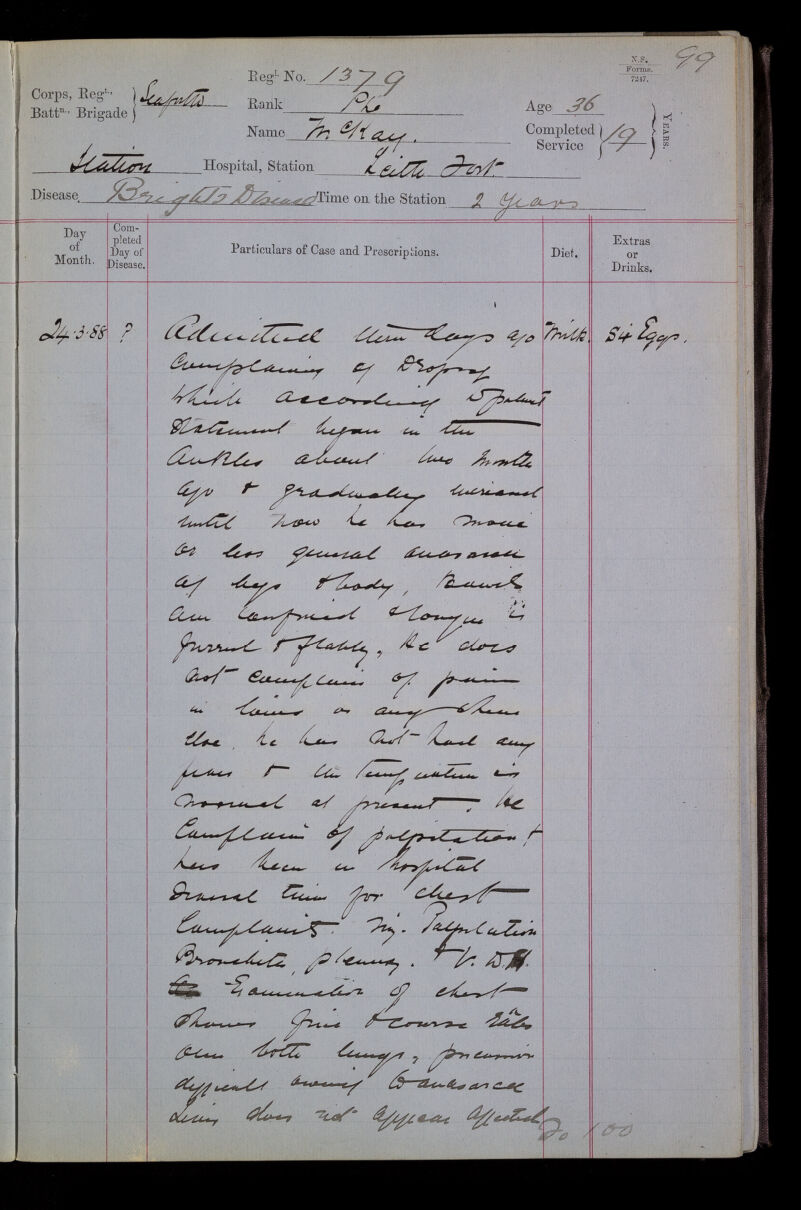 99
N.S.
Forms.
7247.
Corps, Regt.
Battn. Brigade } Seaforths
Regl. No. 1379
Rank Pte
Name McKay.
Age 36
Completed
Service } 19 } YEARS.
Station Hospital, Station Leith Fort.
Disease Brights Disease Time on the Station 2 years
Day
of
Month.
Com-
pleted
Day of
Disease.
Particulars of Case and Prescriptions.
Diet.
Extras
or
Drinks.
24.3.88 ? Admitted days ago Milk. Six Eggs.
Complaining of Dropsy
which according to patients
Statement began in the
Ankles about two months
ago & gradually increased
until now he has more
or less general anasarca
of legs & body, Bowels
are confined & tongue is
furred & flabby. He does
not complain of pain
in loins or any where
else. he has not had any
fever & the temperature is
normal at present. He
Complains of palpitation &
has been in hospital
several times for chest
Complaints. viz. Palpitation
Bronchitis, pleurisy. & V.D.H.
Examination of chest
shows fine & coarse râles
over both lungs, percussion
difficult owing to anasarca
Liver does not appear affected
To 100